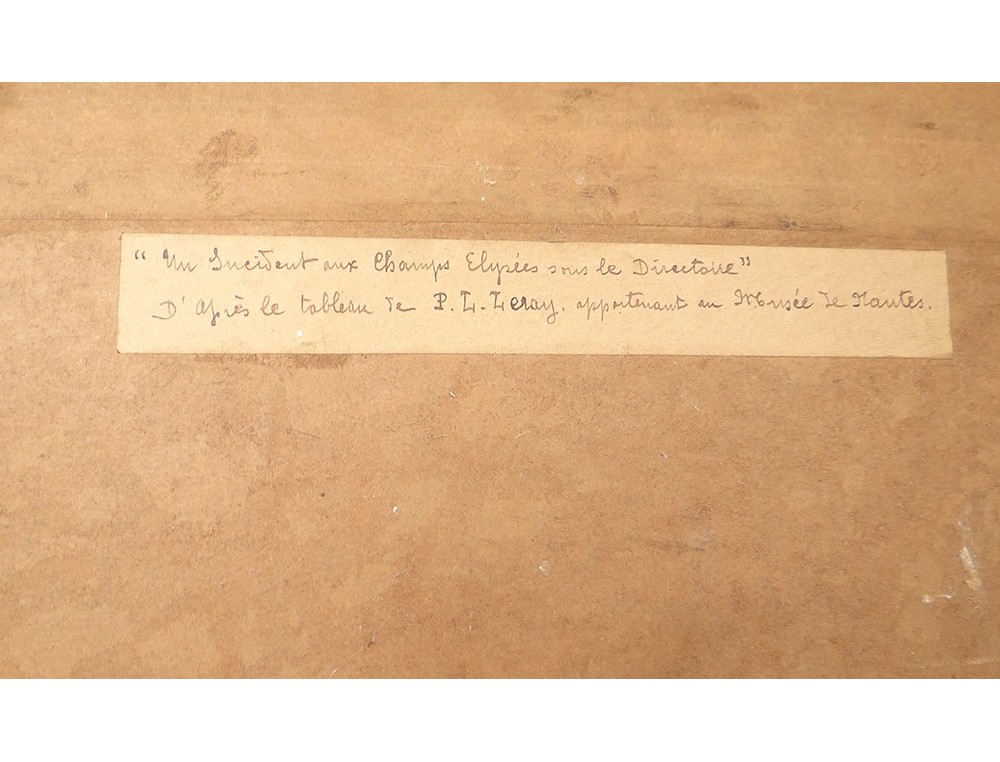 “ Un Incident aux Champs Elysées sous le Directoire”
D' après le tableau de P. L. Leray. appartenant au Musée de Nantes.